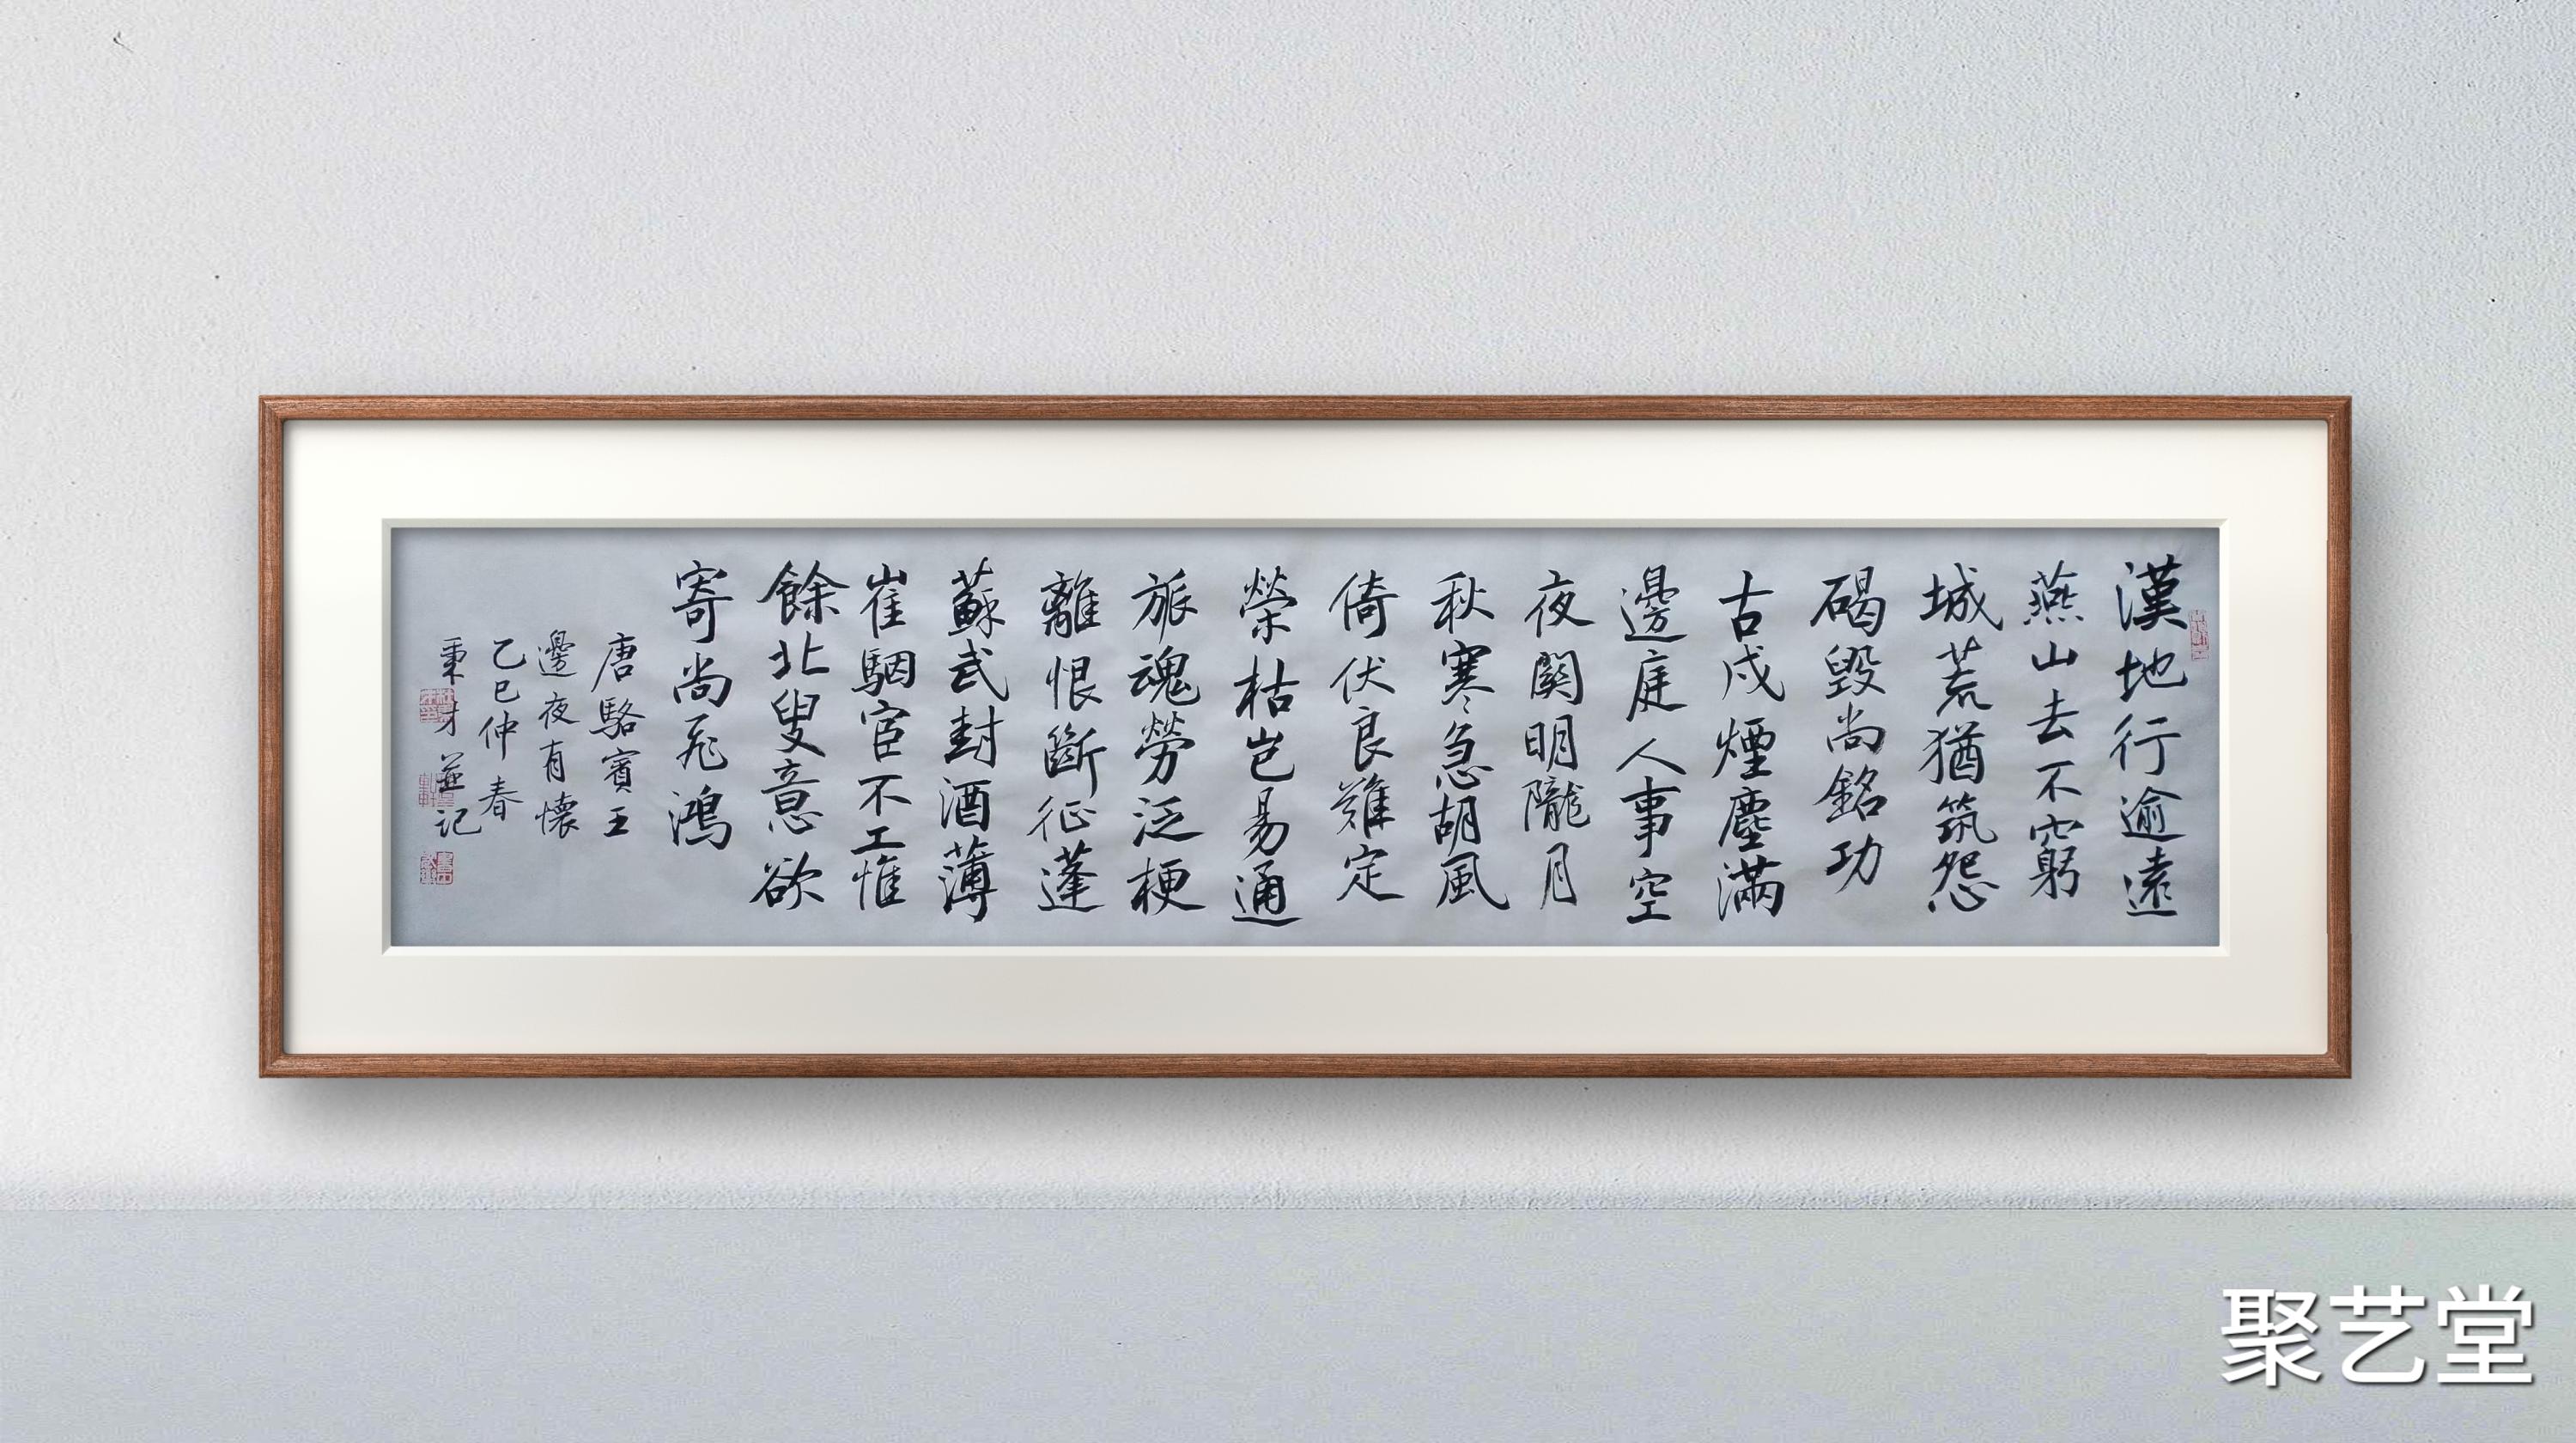 漢地行逾遠
燕山去不窮
城荒猶筑怨
碣毀尚銘功
古戍煙塵滿
邊庭人事空
夜關明隴月
秋寒急胡風
倚伏良難定
榮枯豈易通
旅魂勞泛梗
離恨斷征蓬
蘇武封酒薄
崔駰宦不工惟
餘北叟意欲
寄尚飛鴻
唐駱賓王
邊夜有懷
乙巳仲春
秉才並記
聚艺堂